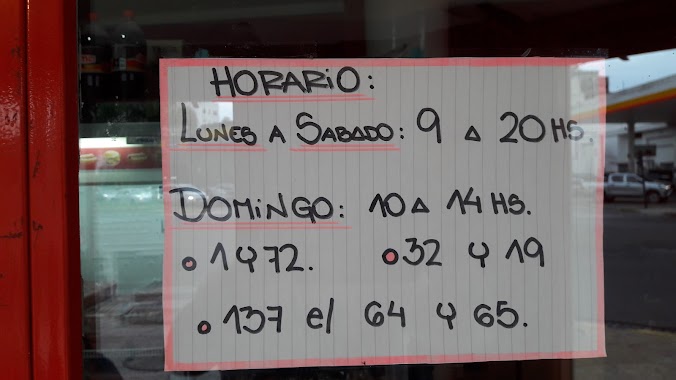 HORARiO:
LUNES A SABADO: 9 A 20 HS.
DOMiNGO: 10 A 14 HS.
• 1 y 72. • 32 y 19
• 137 e/ 64 y 65.